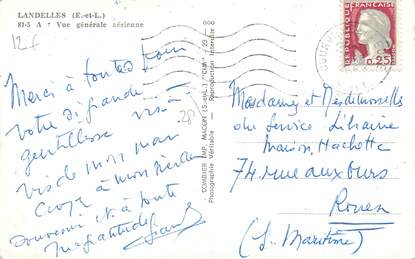 LANDELLES (E.-et-L.)
81-5 A - Vue générale aérienne
12€
Merci à toutes pour
votre si grande
gentillesse vis à
vis de mon mari
Croyez à mon meilleur
souvenir et à toute
ma gratitude
28)
COMBIER IMP. MACON (S.-et-L.) "CIM" - 23 - 0
Photographie Véritable - Reproduction Interdite
REPUBLIQUE FRANÇAISE
0,25
POSTES
Mesdames et Mesdemoiselles
du Service Librairie
Maison Hachette
74 rue aux Ours
Rouen
(S. Maritime)